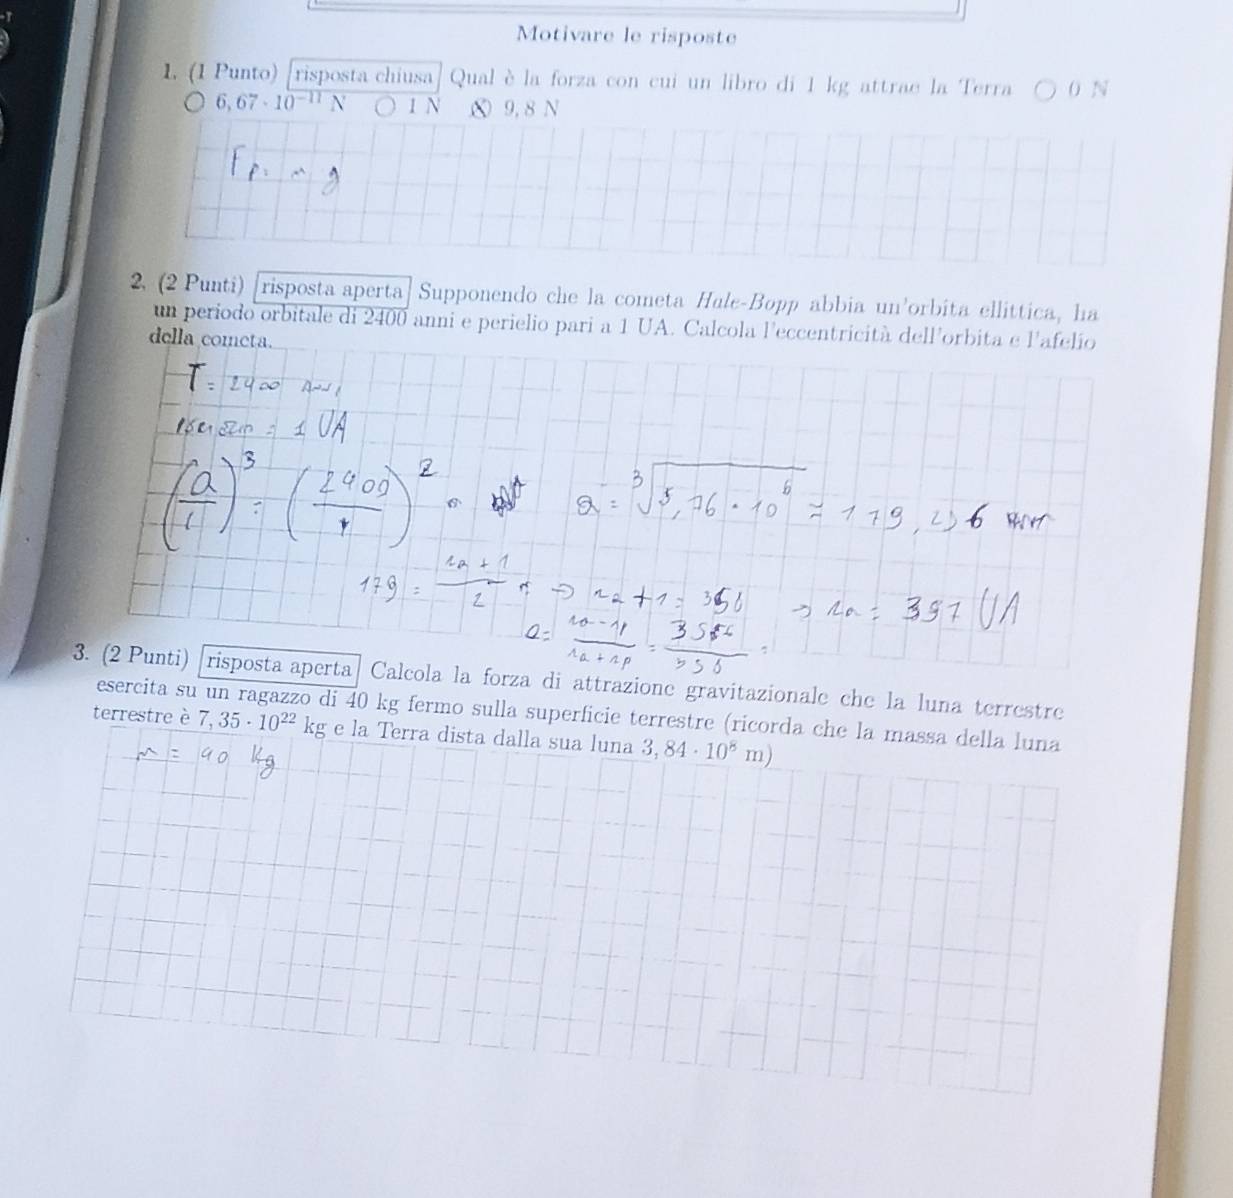 Motivare le risposte
1. (1 Punto) risposta chiusa Qual è la forza con cui un libro di 1 kg attrae la Terra ○ 0 N
○ 6,67 · 10⁻¹¹ N ○ 1 N ⊗ 9,8 N
Fp = m g
2. (2 Punti) risposta aperta Supponendo che la cometa Hale-Bopp abbia un'orbita ellittica, ha
un periodo orbitale di 2400 anni e perielio pari a 1 UA. Calcola l'eccentricità dell'orbita e l'afelio
della cometa.
T = 2400
= 1 UA
(a/1)³ = (2400/1)² a = ∛5,76 · 10⁶ = 179, 6
179 = (ra + 1)/2 → ra + 1 = 356 → ra = 357 UA
e = (ra - rp)/(ra + rp) =
3. (2 Punti) risposta aperta Calcola la forza di attrazione gravitazionale che la luna terrestre
esercita su un ragazzo di 40 kg fermo sulla superficie terrestre (ricorda che la massa della luna
terrestre è 7,35 · 10²² kg e la Terra dista dalla sua luna 3,84 · 10⁸ m)
m = 40 kg